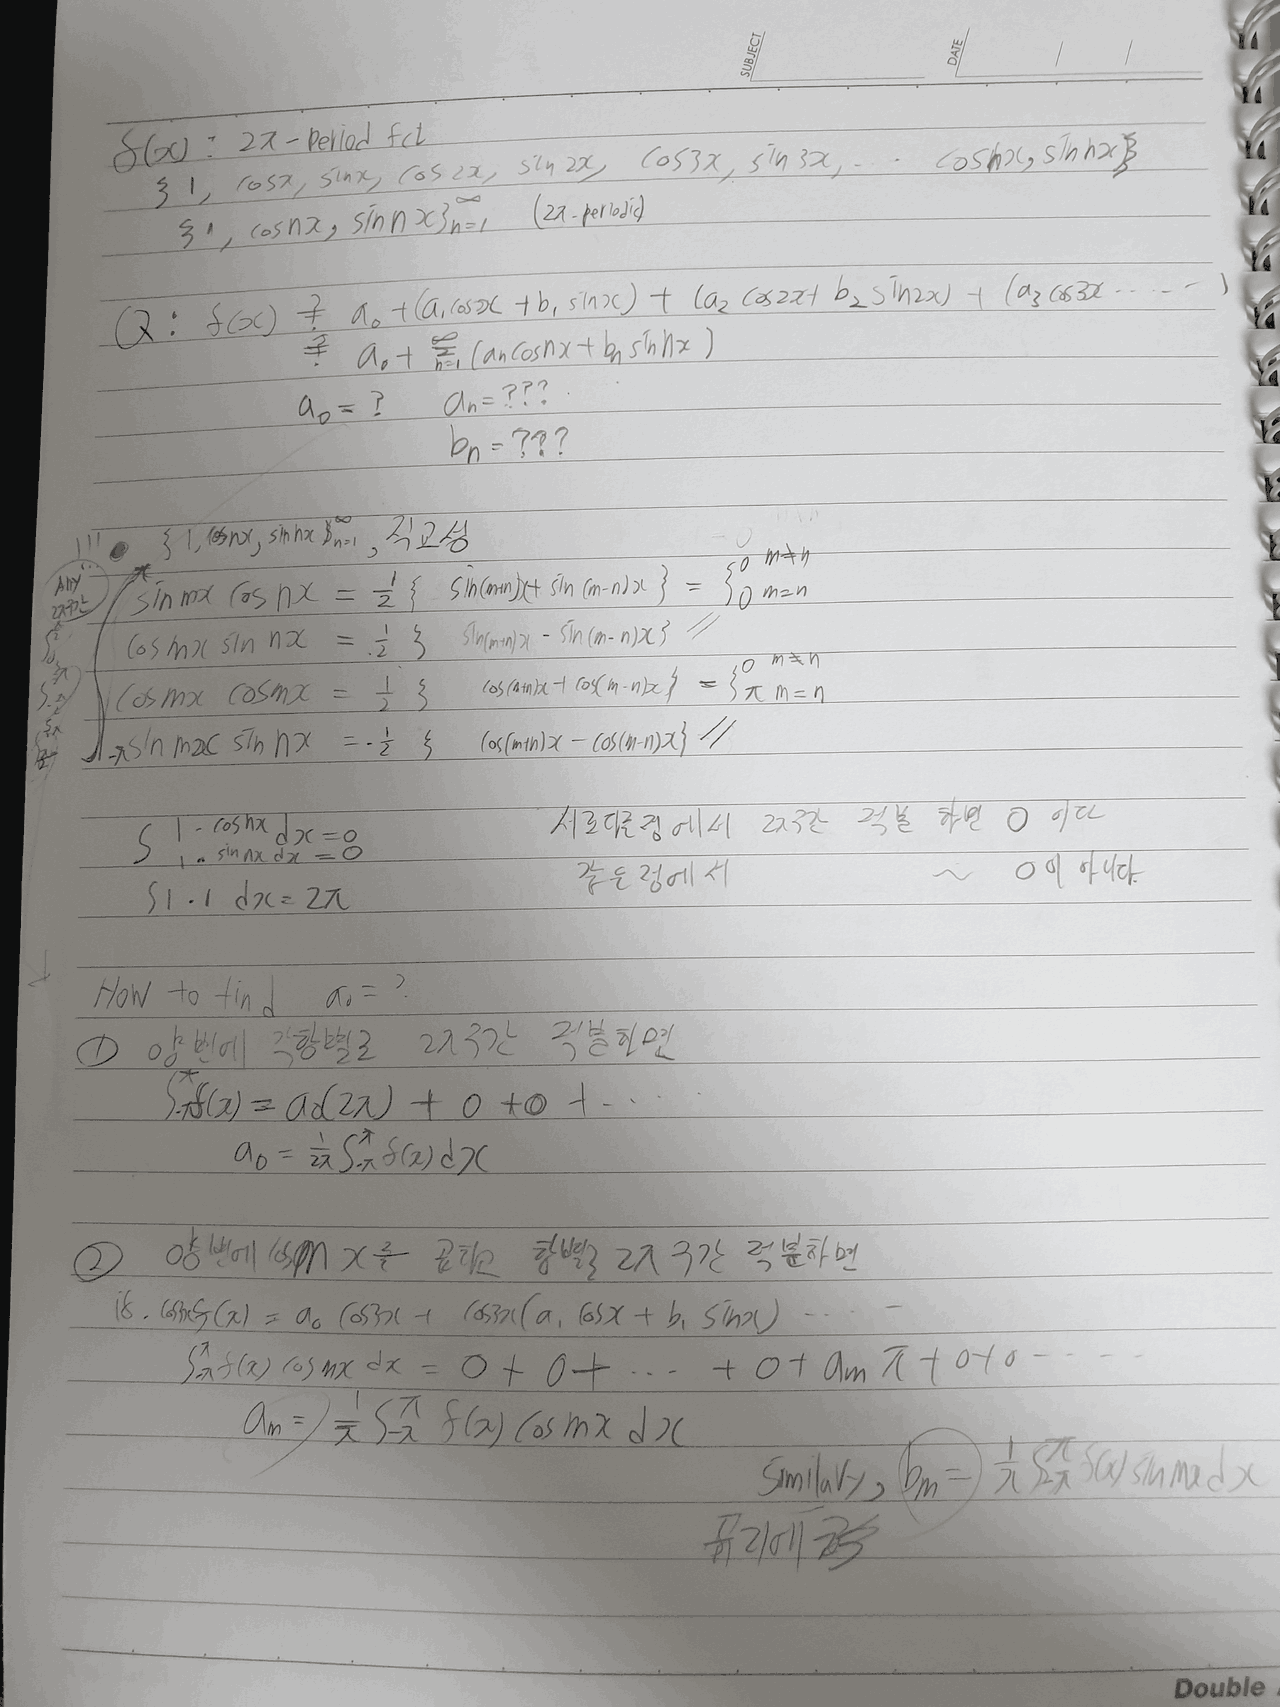 SUBJECT
DATE
f(x) : 2π - Period fct
{ 1, cosx, sinx, cos2x, sin2x, cos3x, sin3x, ... cosnx, sinnx }
{ 1, cosnx, sinnx }∞n=1 (2π-periodic)
Q : f(x) ≟ a₀ + (a₁cosx + b₁ sinx) + (a₂ cos2x + b₂ sin2x) + (a₃ cos3x ...... )
≟ a₀ + Σ∞n=1 (an cosnx + bn sinnx )
a₀ = ? an = ???
bn = ???
!!! • { 1, cosnx, sinnx }∞n=1, 직교성
Any
2π구간
sin mx cos nx = 1/2 { sin(m+n)x + sin(m-n)x } = { 0 m≠n
0 m=n
cosmx sin nx = 1/2 { sin(m+n)x - sin(m-n)x } //
cosmx cosmx = 1/2 { cos(m+n)x + cos(m-n)x } = { 0 m≠n
π m=n
sin mx sin nx = -1/2 { cos(m+n)x - cos(m-n)x } //
∫ 1 · cosnx dx = 0 서로다른항에서 2π구간 적분 하면 0 이다
1 · sinnx dx = 0
같은항에서 ~ 0이 아니다.
∫ 1 · 1 dx = 2π
How to find a₀ = ?
① 양변에 각항별로 2π구간 적분하면
∫π-π f(x) = a₀(2π) + 0 + 0 + ....
a₀ = 1/2π ∫π-π f(x) dx
② 양변에 cosmx를 곱하고 항별로 2π구간 적분하면
f(x) = a₀ cos3x + cos3x (a₁ cosx + b₁ sinx) ....
∫π-π f(x) cosmx dx = 0 + 0 + ... + 0 + am π + 0 + 0 ....
am = 1/π ∫π-π f(x) cosmx dx
Similary, bm = 1/π ∫π-π f(x) sin mx dx
퓨리에
Double